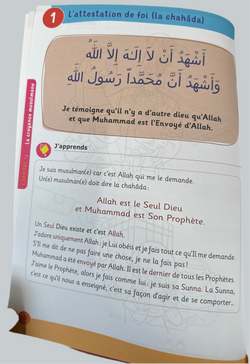 1
L'attestation de foi (la chahâda)
أَشْهَدُ أَنْ لاَ إِلَهَ إِلاَّ اللَّهُ
وَأَشْهَدُ أَنَّ مُحَمَّداً رَسُولُ اللَّهِ
Je témoigne qu'il n'y a d'autre dieu qu'Allah
et que Muhammad est l'Envoyé d'Allah.
La croyance musulmane
J'apprends
Je suis musulman(e) car c'est Allah qui me le demande.
Un(e) musulman(e) doit dire la chahâda :
Allah est le Seul Dieu
et Muhammad est Son Prophète.
Un Seul Dieu existe et c'est Allah.
J'adore uniquement Allah : je Lui obéis et je fais tout ce qu'Il me demande.
S'Il me dit de ne pas faire une chose, je ne la fais pas !
Muhammad a été envoyé par Allah. Il est le dernier de tous les Prophètes.
J'aime le Prophète, alors je fais comme lui : je suis sa Sunna. La Sunna,
c'est ce qu'il nous a enseigné, c'est sa façon d'agir et de se comporter..